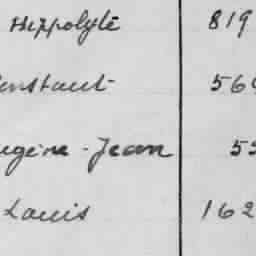 Hippolyte 819
onstant 564
ugène-Jean 55
Louis 162